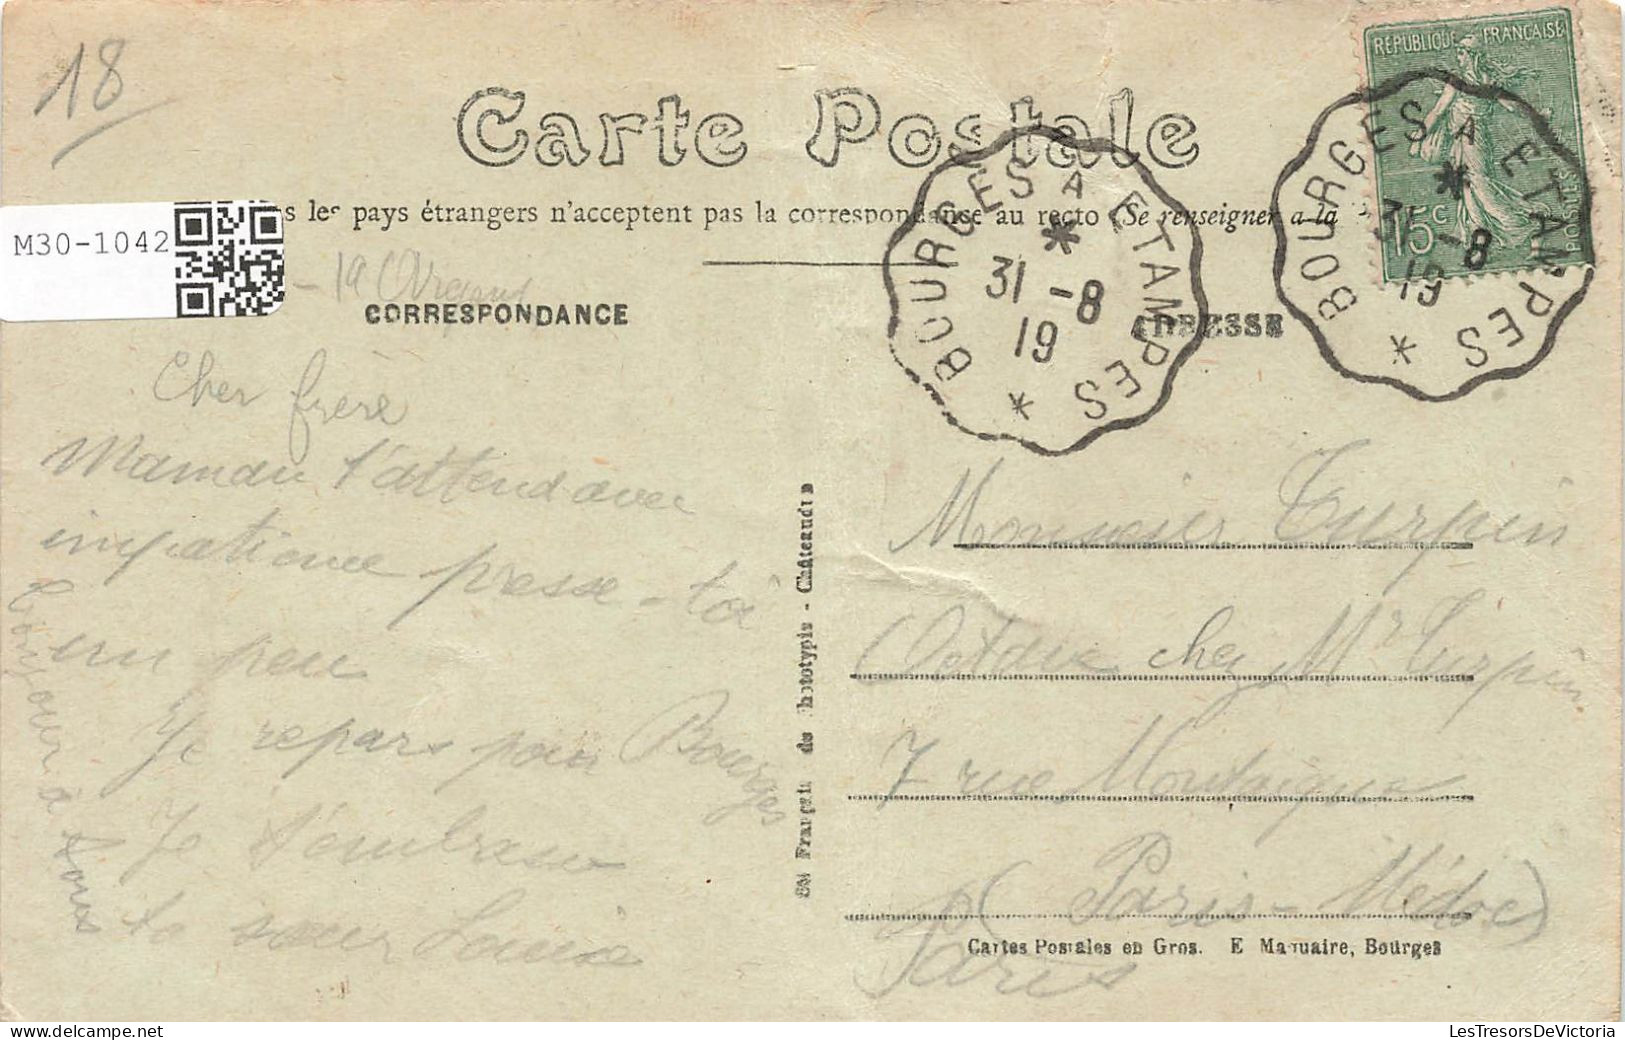 18
Carte Postale
s les pays étrangers n'acceptent pas la correspondance au recto (Se renseigner a la
M30-1042
CORRESPONDANCE
ADRESSE
RÉPUBLIQUE FRANÇAISE
15c
POSTES
BOURGES A ETAMPES
31-8
19
BOURGES A ETAMPES
31-8
19
Cher frère
Maman t'attend avec
impatience presse-toi
un peu
Je repars pour Bourges
Je t'embrasse
ta sœur Louise
Bonjour à tous
Monsieur Turpin
Octave chez Mr Turpin
7 rue Montaigne
(Paris-Médoc)
Paris
Française de Phototypie - Châteaudun
Cartes Postales en Gros. E Maquaire, Bourges
LesTresorsDeVictoria